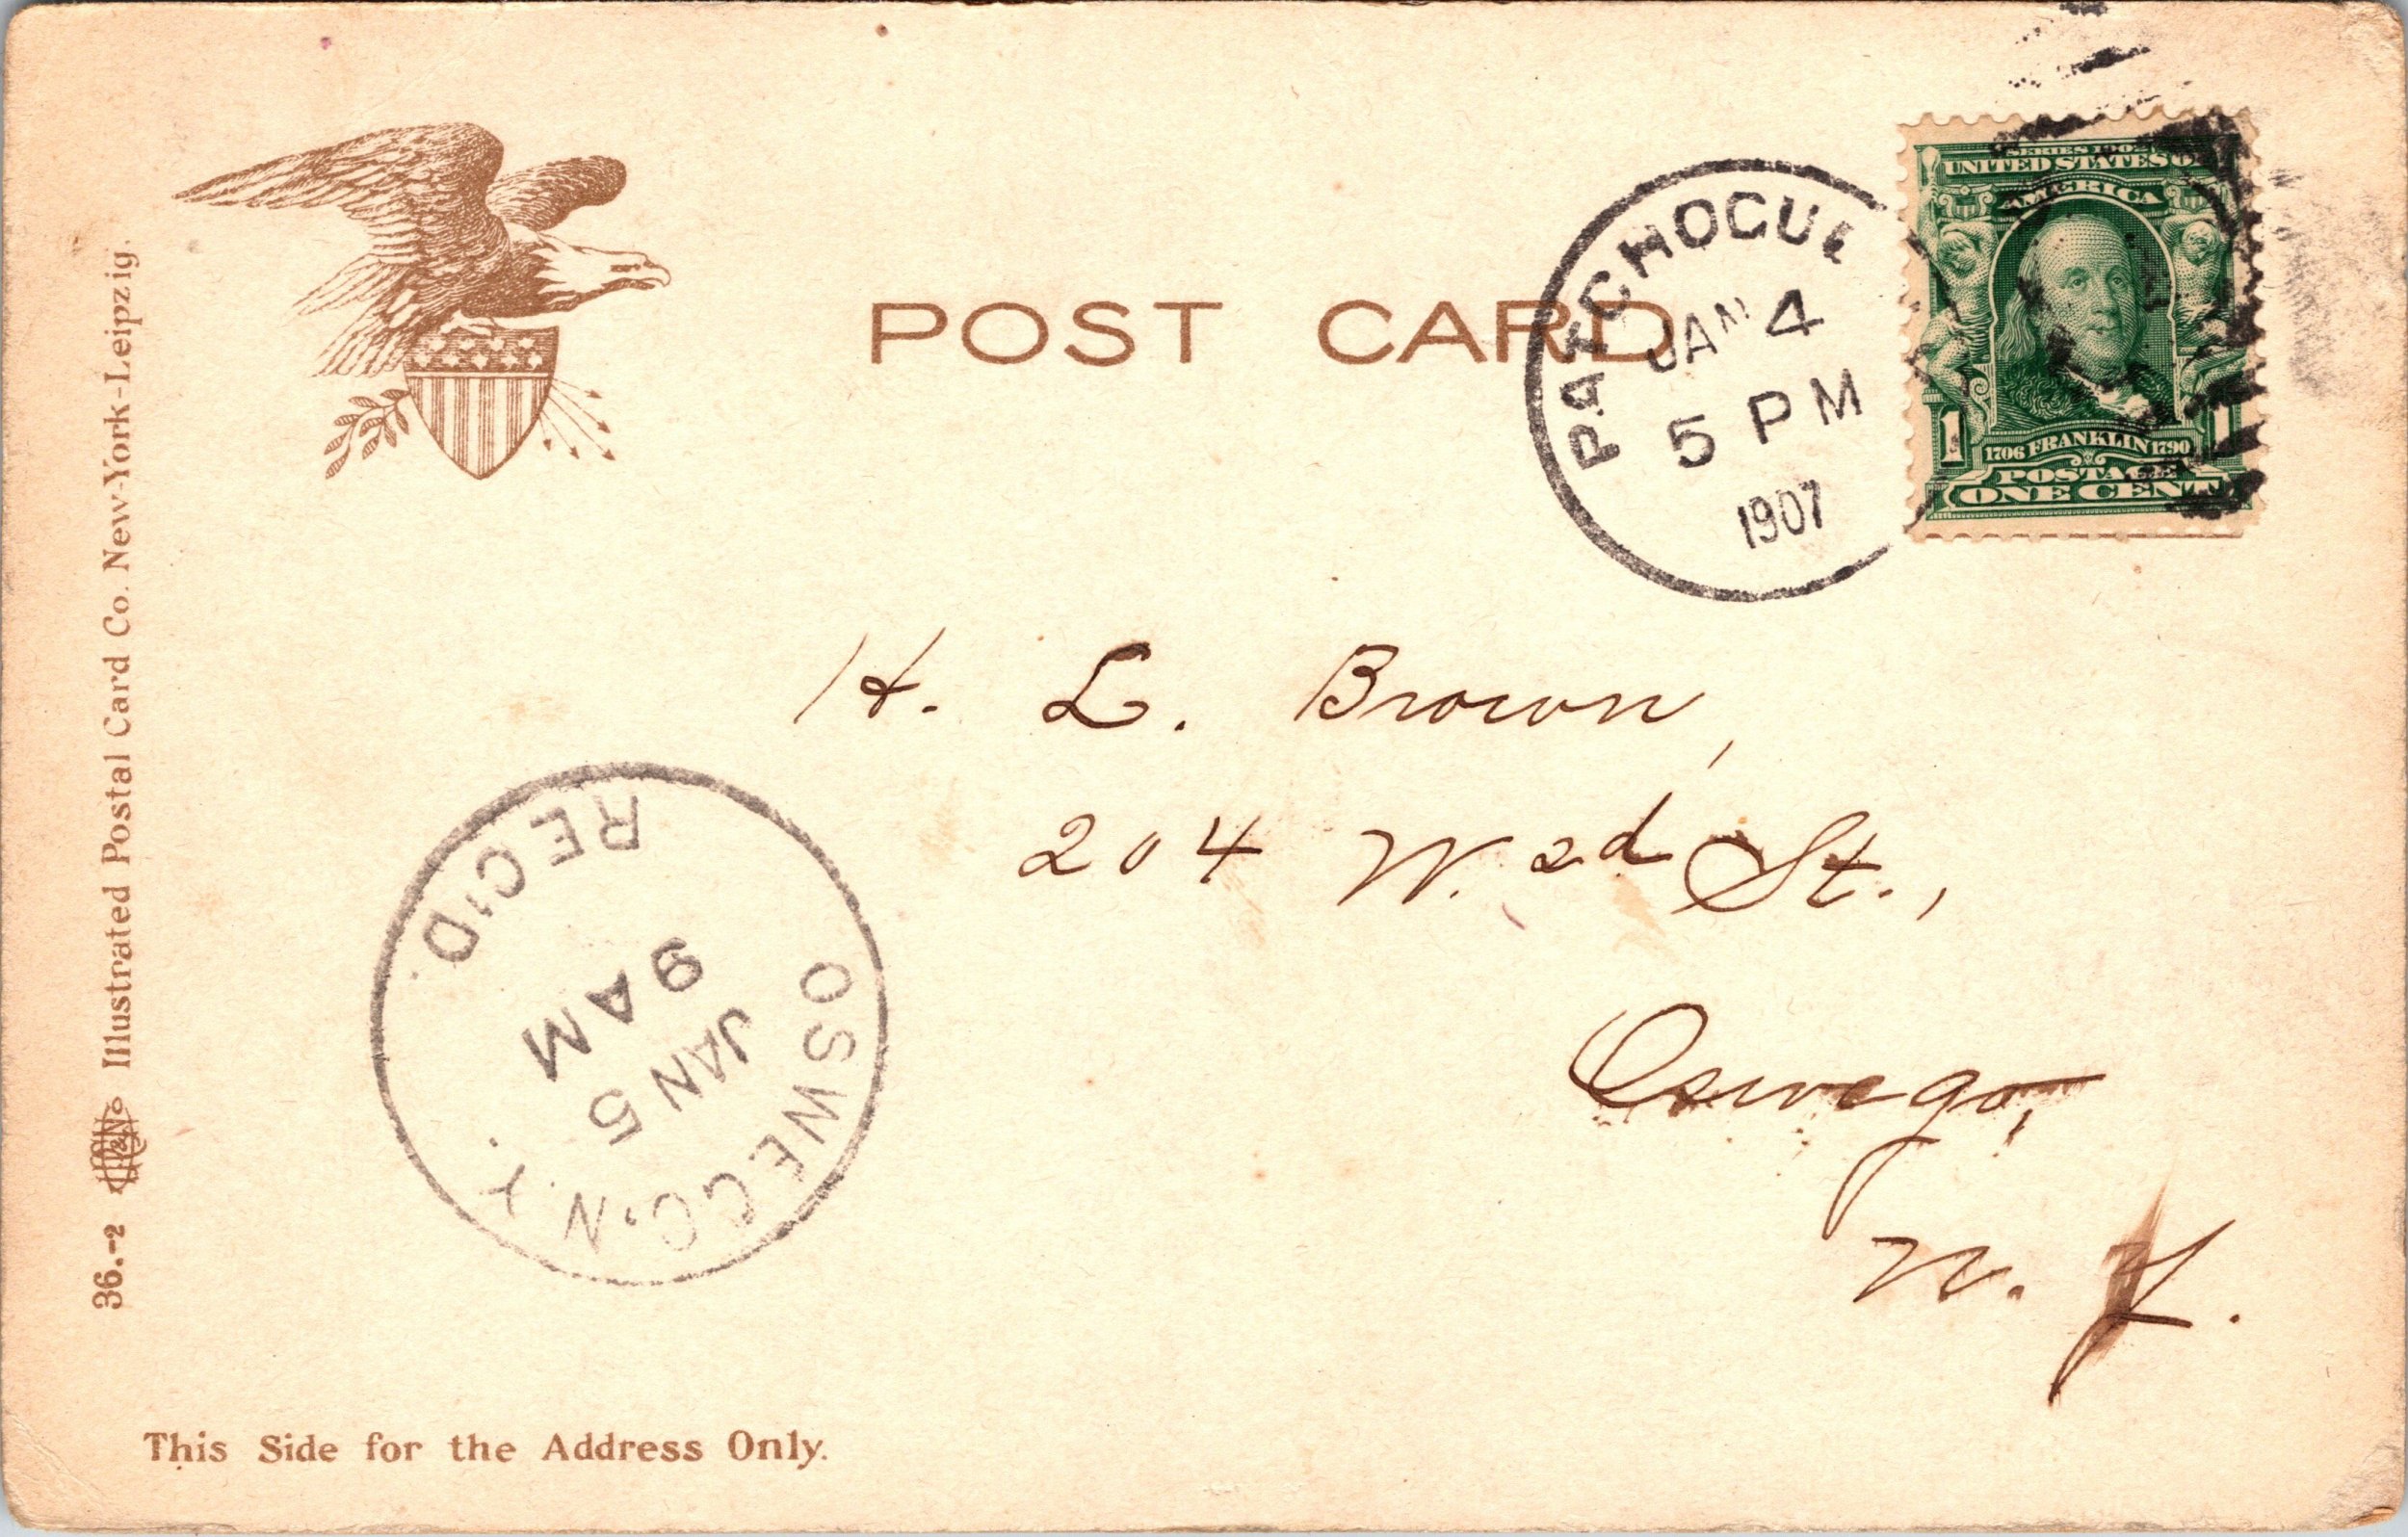 POST CARD
PATCHOGUE
JAN 4
5 PM
1907
SERIES 1902
UNITED STATES OF
AMERICA
1 1
1706 FRANKLIN 1790
POSTAGE
ONE CENT
H. L. Brown,
204 W. 2d St.,
Oswego,
N. Y.
REC'D.
9 AM
JAN 5
OSWEGO, N.Y.
36.-2 Illustrated Postal Card Co. New-York-Leipzig.
This Side for the Address Only.